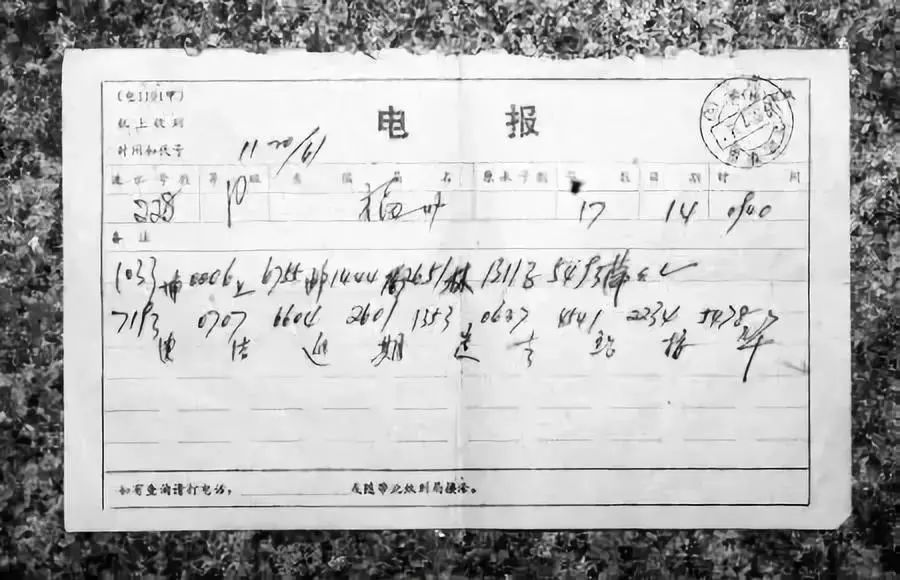 (电111甲)
电 报
机上收到
时间和代号
11 20/61
流水号数 等级 发报局名 原来号数 字数 日期 时间
228 福州 17 14 0900
备注
1033 埔 0006 上 6755 邮 1444 2651 林 1311 子 5493
7193 0707 6604 2609 1353 0637 4541 2234 5478
电 告 返 期 吉 站 接 华
如有查询请打电话, 或随带此报到局接洽。